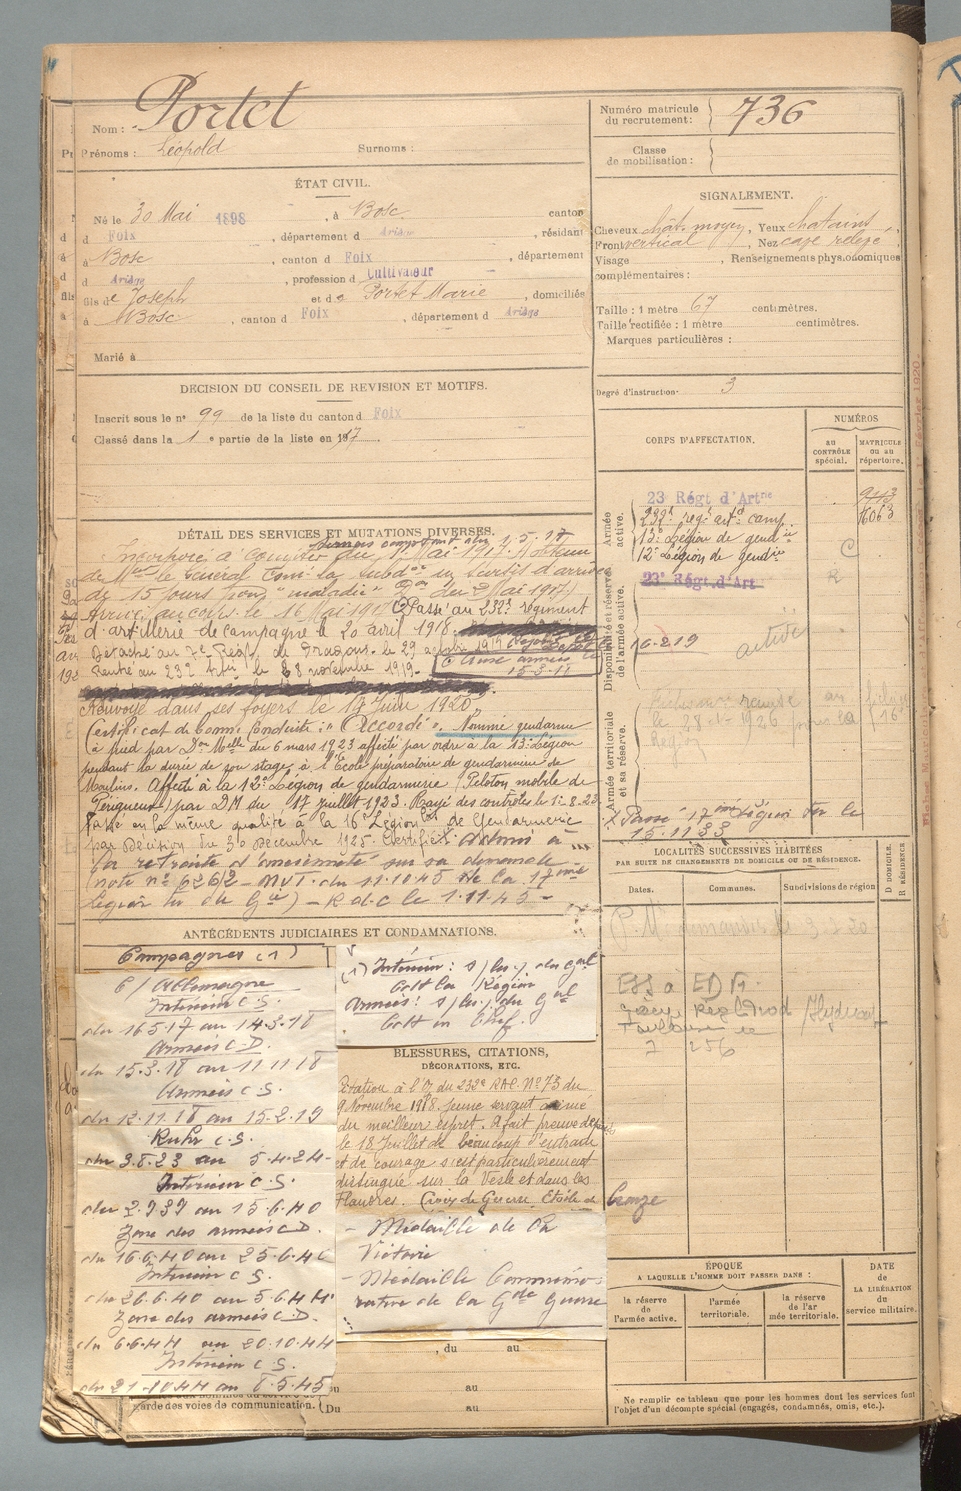 Nom : Portet
Prénoms : Léopold Surnoms :
Numéro matricule
du recrutement : 736
Classe
de mobilisation :
ÉTAT CIVIL.
Né le 30 Mai 1898, à Bosc canton
d Foix, département d Ariège, résidant
à Bosc, canton d Foix département
d Ariège, profession d Cultivateur
fils de Joseph et de Portet Marie, domiciliés
à Bosc, canton d Foix, département d Ariège
Marié à
SIGNALEMENT.
Cheveux chât. moyen, Yeux châtains,
Front vertical, Nez cave relevé
Visage Renseignements physionomiques
complémentaires :
Taille : 1 mètre 67 centimètres.
Taille rectifiée : 1 mètre centimètres.
Marques particulières :
Degré d'instruction 3
DECISION DU CONSEIL DE REVISION ET MOTIFS.
Inscrit sous le n° 99 de la liste du canton d Foix
Classé dans la 1e partie de la liste en 1917.
CORPS D'AFFECTATION.
NUMÉROS
au
CONTRÔLE
spécial.
MATRICULE
ou au
répertoire.
Armée
active.
23 Régt d'Artie 9443
232e regt artie camp. 16063
13e Légion de gendie
12e Légion de gendie C
23e Régt. d'Art
Disponibilité et réserve
de l'armée active.
16-219
Armée territoriale
et sa réserve.
le 28 1926
Région
Passé 17me Légion
15.11.33
DÉTAIL DES SERVICES ET MUTATIONS DIVERSES.
Incorporé à compter du Mai 1917. Obtenu
de Mr le Général Com. la subd. un sursis d'arrivée
de 15 jours pour "maladie" Don du 2 Mai 1917
Arrivé au corps le 16 Mai 1917 Passé au 232e régiment
d'artillerie de campagne le 20 avril 1918.
Détaché au 7e Regt de Dragons le 29
Rentré au 23e le 8 novembre 1919.
aux armées
15-3-18
Renvoyé dans ses foyers le 17 Juin 1920
Certificat de bonne Conduite : "Accordé". Nommé gendarme
à pied par Don Melle du 6 mars 1923 affecté par ordre à la 13e Légion
pendant la durée de son stage à l'École préparatoire de gendarmerie de
Moulins. Affecté à la 12e Légion de gendarmerie (Peloton mobile de
Périgueux) par DM du 17 Juillet 1923. Rayé des contrôles le 1-8-23
Passé en la même qualité à la 16e Légion de Gendarmerie
par Décision du 30 Décembre 1925. Admis à
la retraite d'ancienneté sur sa demande
(note n° 626/2 - MVT. du 11.10.45 de la 17me
Légion de Gie) - R.d.C le 1.11.45 -
LOCALITÉS SUCCESSIVES HABITÉES
PAR SUITE DE CHANGEMENTS DE DOMICILE OU DE RÉSIDENCE.
Dates. Communes. Subdivisions de région D DOMICILE. R RÉSIDENCE
Toulouse le
7 256
ANTÉCÉDENTS JUDICIAIRES ET CONDAMNATIONS.
Campagnes (1)
C/ Allemagne
Intérieur C.S.
du 16 5.17 au 14-3-18
Armées C.D.
du 15.3.18 au 11 11 18
Armées C.S.
du 12.11.18 au 15-2-19
Ruhr C.S.
du 3.8.23 au 5-4-24-
Intérieur C.S.
du 2.9 39 au 15.6.40
Zone des armées C.D.
du 16.6.40 au 25.6.40
Intérieur C.S.
du 26.6.40 au 5.6.44
Zone des armées C.D.
du 6.6.44 au 20.10.44
Intérieur C.S.
du 21.10 44 au 8.5.45
(1) Intérieur : s/ du Gal
Cdt la Région
Armées : s/ du Gal
Cdt en Chef.
BLESSURES, CITATIONS,
DÉCORATIONS, ETC.
Citation à l'O/ du 232e RAC. N° 73 du
9 Novembre 1918. Jeune servant animé
du meilleur esprit. A fait preuve depuis
le 18 Juillet de beaucoup d'entrain
et de courage s'est particulièrement
distingué sur la Vesle et dans les
Flandres. Croix de Guerre. Etoile de bronze
- Médaille de la
Victoire
- Médaille Commémo
rative de la Gde Guerre
, du au
au
garde des voies de communication. Du au
ÉPOQUE
A LAQUELLE L'HOMME DOIT PASSER DANS :
la réserve
de l'armée active.
l'armée
territoriale.
la réserve
de l'ar
mée territoriale.
DATE
de
LA LIBÉRATION
du
service militaire.
Ne remplir ce tableau que pour les hommes dont les services font
l'objet d'un décompte spécial (engagés, condamnés, omis, etc.).